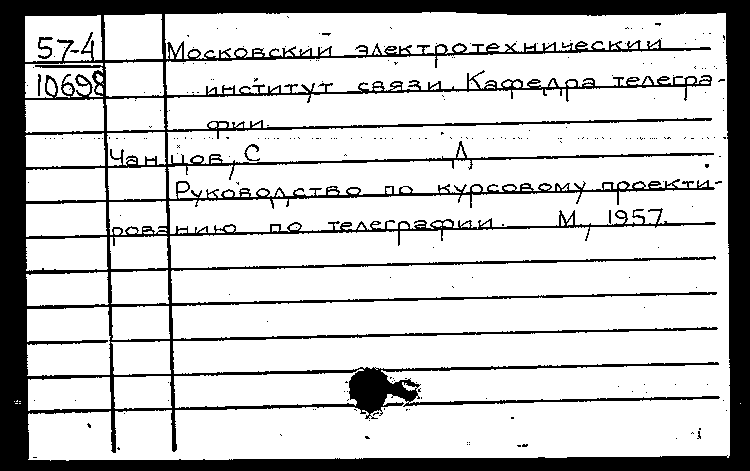 57-4 Московский электротехнический
10698 институт связи. Кафедра телегра-
фии.
Чанцов, С Д
Руководство по курсовому проекти-
рованию по телеграфии. М., 1957.